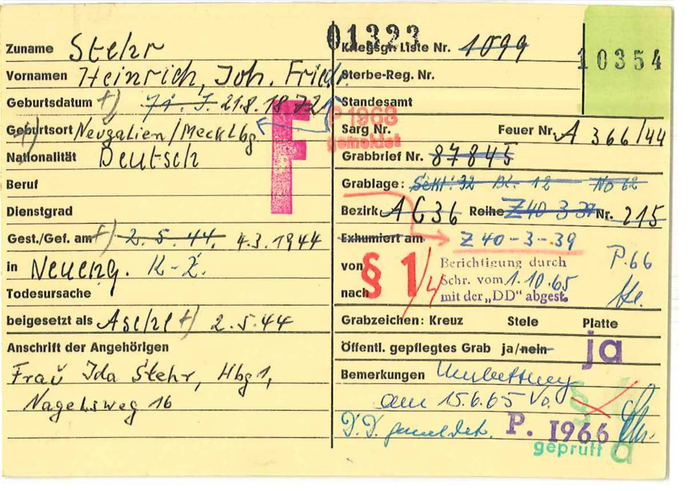 Zuname Stehr
Vornamen Heinrich, Joh. Friedr.
Geburtsdatum +) 71 J. 21.8.1872
Geburtsort +) Neugalien/Mecklbg.
Nationalität Deutsch
Beruf
Dienstgrad
Gest./Gef. am +) 2.5.44. 4.3.1944
in Neueng. K-Z.
Todesursache
beigesetzt als Asche +) 2.5.44
Anschrift der Angehörigen
Frau Ida Stehr, Hbg 1,
Nagelsweg 16
F
01323
Kriegsgh Liste Nr. 1099
10354
Sterbe-Reg. Nr.
Standesamt
P 1963
gemeldet
Sarg Nr. Feuer Nr. A 366/44
Grabbrief Nr. 87845
Grablage: Bl. 12 No 62
Bezirk AG36 Reihe Z40-3-39 Nr. 215
Exhumiert am Z 40-3-39
von
nach
§ 1/4
Berichtigung durch
Schr. vom 1.10.65
mit der „DD" abgest.
P.66
Grabzeichen: Kreuz Stele Platte
ja
Öffentl. gepflegtes Grab ja/nein
Bemerkungen Umbettung
am 15.6.65 Vo.
D.D. gemeldet.
P. 1966
geprüft